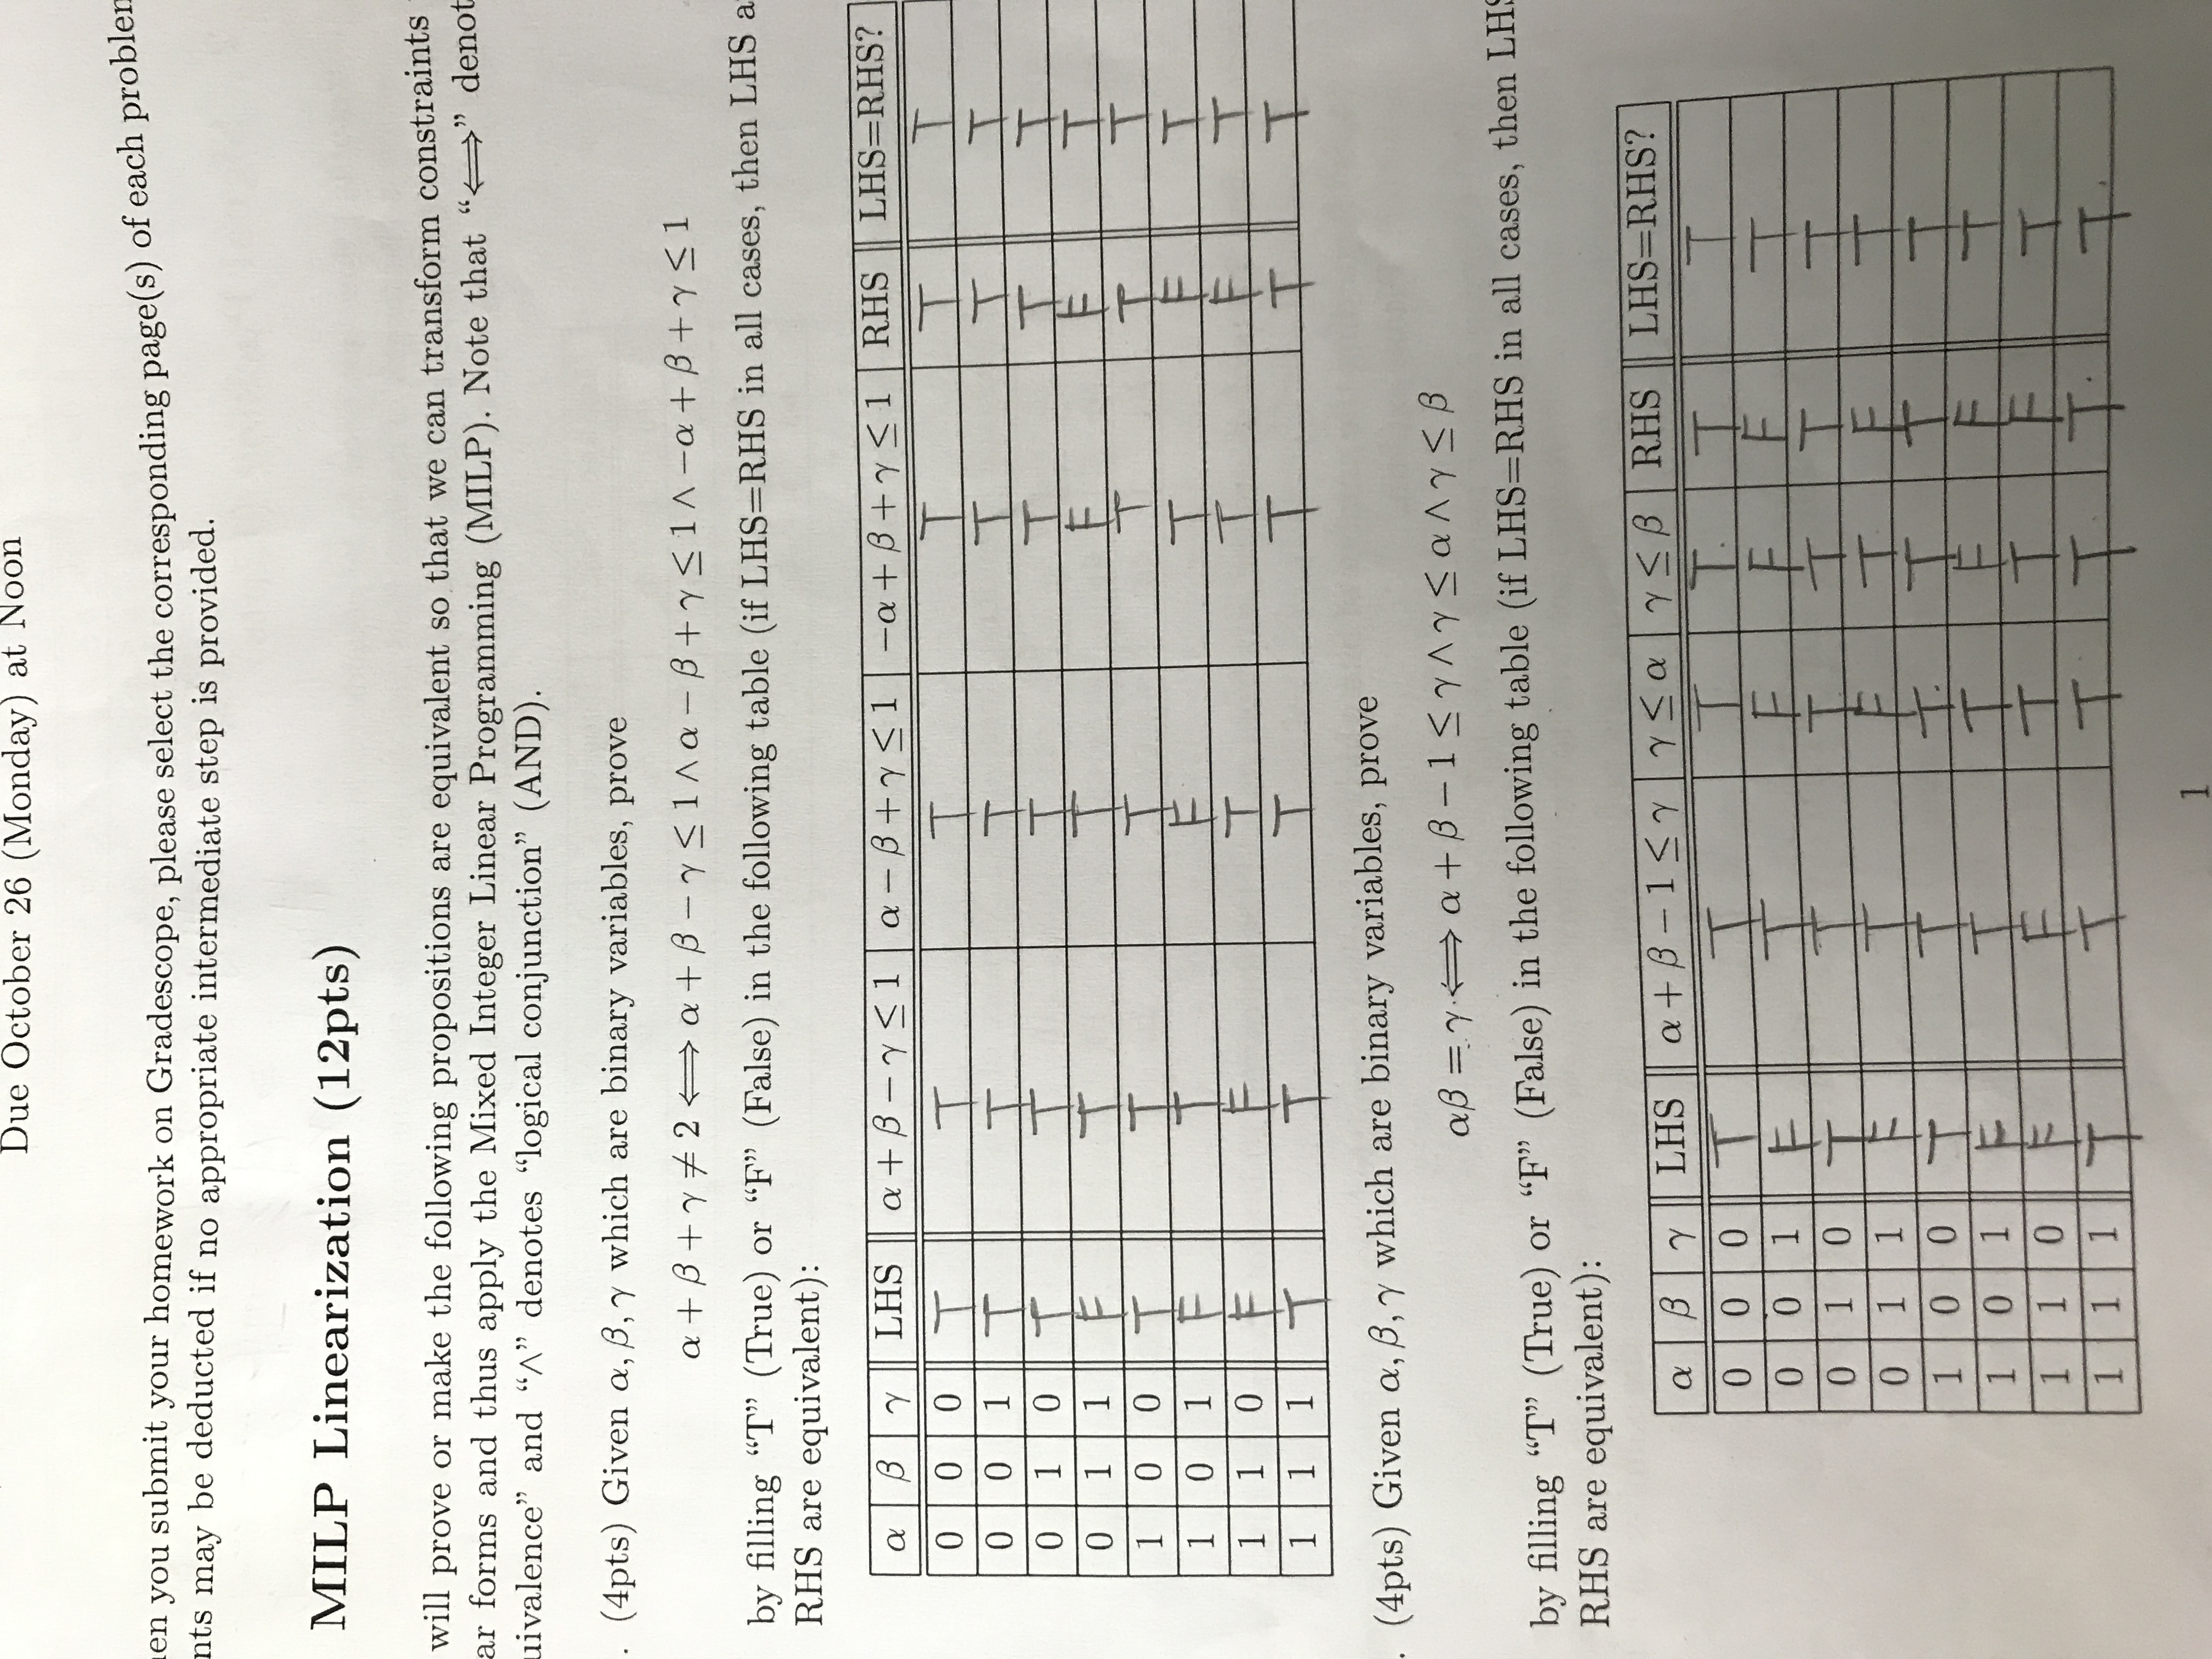 Due October 26 (Monday) at Noon
en you submit your homework on Gradescope, please select the corresponding page(s) of each problem
nts may be deducted if no appropriate intermediate step is provided.
MILP Linearization (12pts)
will prove or make the following propositions are equivalent so that we can transform constraints
ar forms and thus apply the Mixed Integer Linear Programming (MILP). Note that “⟺” denot
uivalence” and “∧” denotes “logical conjunction” (AND).
. (4pts) Given α, β, γ which are binary variables, prove
α + β + γ ≠ 2 ⟺ α + β − γ ≤ 1 ∧ α − β + γ ≤ 1 ∧ −α + β + γ ≤ 1
by filling “T” (True) or “F” (False) in the following table (if LHS=RHS in all cases, then LHS a
RHS are equivalent):
α β γ LHS α + β − γ ≤ 1 α − β + γ ≤ 1 −α + β + γ ≤ 1 RHS LHS=RHS?
0 0 0 T T T T T T
0 0 1 T T T T T T
0 1 0 T T T T T T
0 1 1 F T T F F T
1 0 0 T T T T T T
1 0 1 F T F T F T
1 1 0 F F T T F T
1 1 1 T T T T T T
. (4pts) Given α, β, γ which are binary variables, prove
αβ = γ ⟺ α + β − 1 ≤ γ ∧ γ ≤ α ∧ γ ≤ β
by filling “T” (True) or “F” (False) in the following table (if LHS=RHS in all cases, then LHS
RHS are equivalent):
α β γ LHS α + β − 1 ≤ γ γ ≤ α γ ≤ β RHS LHS=RHS?
0 0 0 T T T T T T
0 0 1 F T F F F T
0 1 0 T T T T T T
0 1 1 F T F T F T
1 0 0 T T T T T T
1 0 1 F T T F F T
1 1 0 F F T T F T
1 1 1 T T T T T T
1